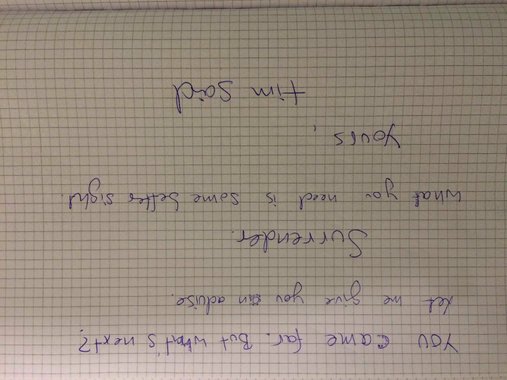 You came far. But what's next?
Let me give you an advise.
Surrender.
What you need is some better sight.
Yours,
Tim Said